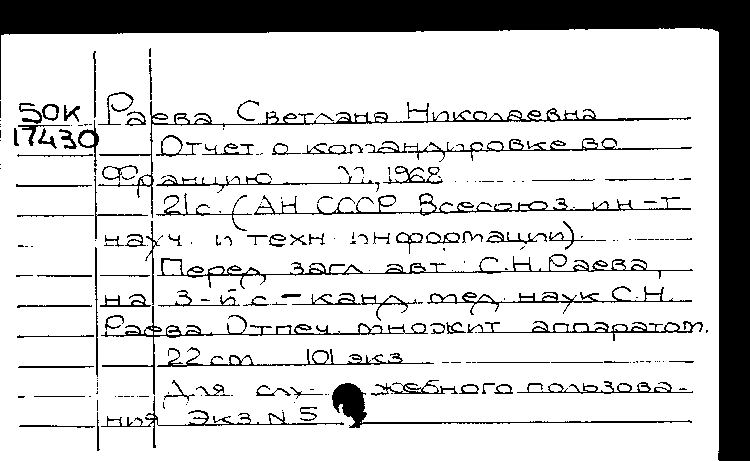 50К
17430
Раева, Светлана Николаевна
Отчет о командировке во
Францию М., 1968
21с. (АН СССР Всесоюз. ин-т
науч. и техн информации).
Перед загл авт: С.Н.Раева,
на 3-й с.- канд. мед наук С.Н.
Раева. Отпеч. множит аппаратом.
22 cm 101 экз
Для слу- жебного пользова-
ния Экз. N 5